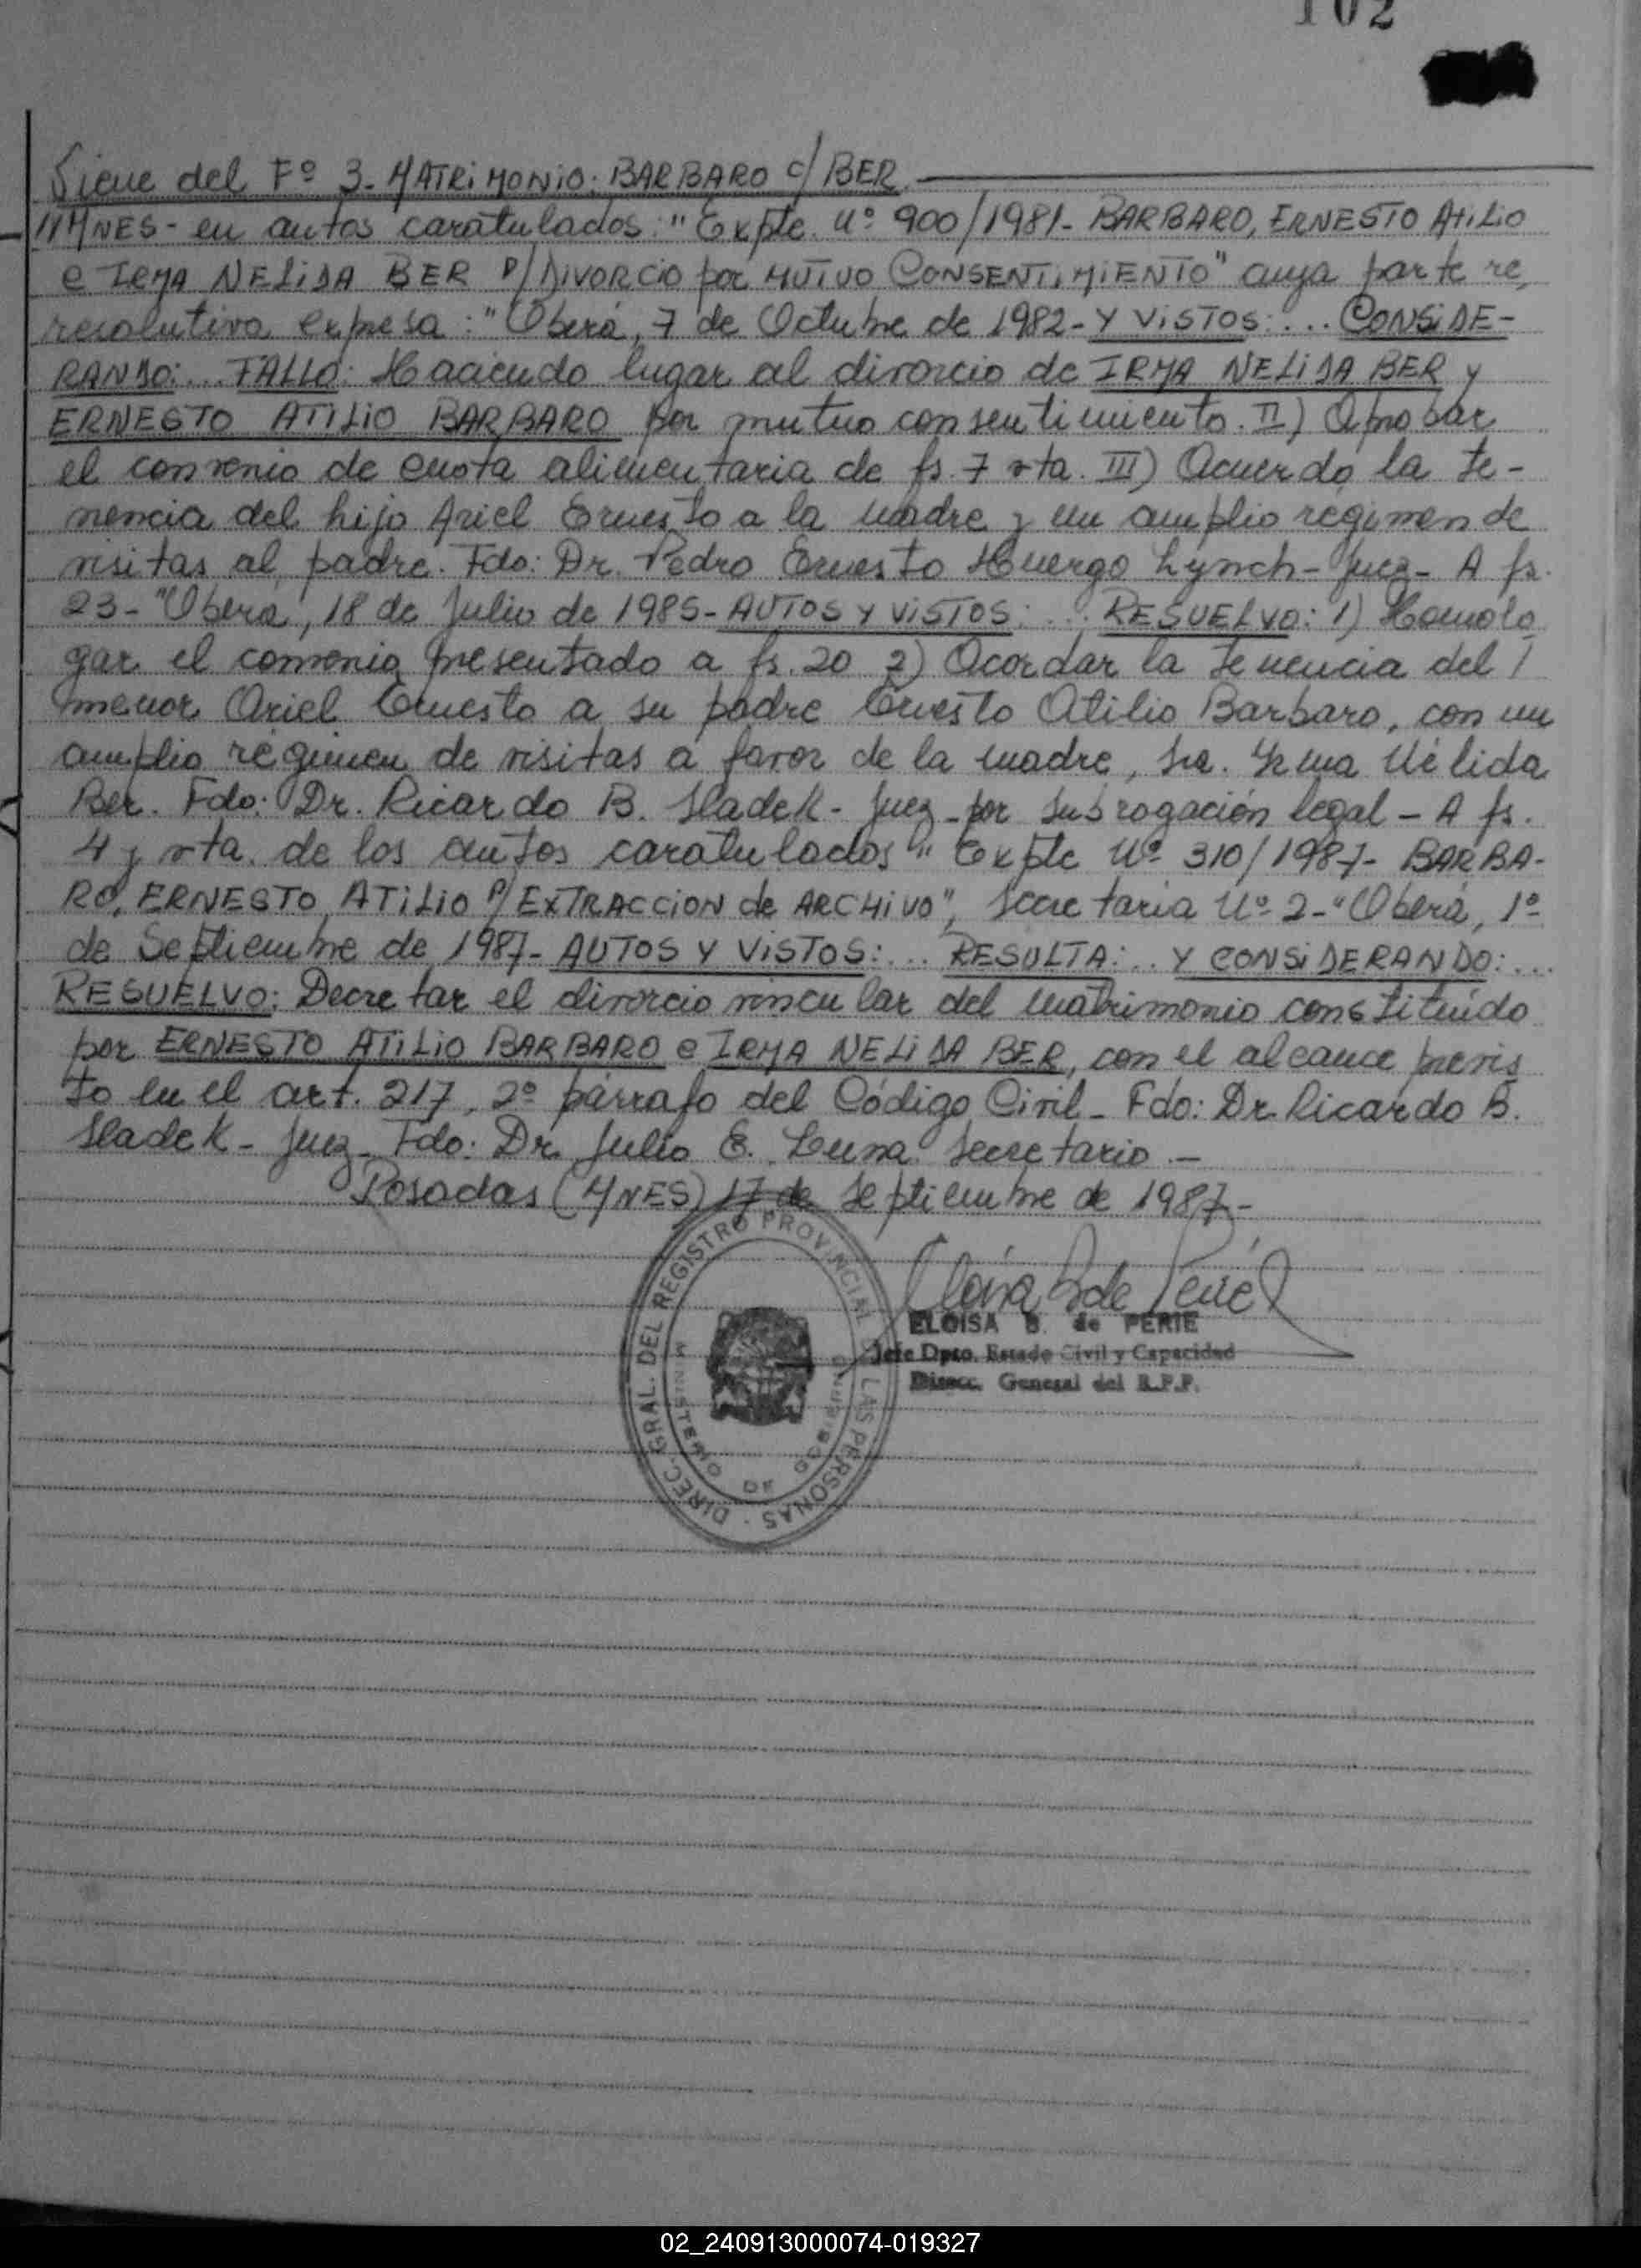 102
Viene del Fº 3- MATRIMONIO: BARBARO c/ BER.
///MNES- en autos caratulados: "Expte. Nº 900/1981- BARBARO, ERNESTO ATILIO
e IRMA NELIDA BER P/ DIVORCIO por MUTUO CONSENTIMIENTO" cuya parte re
resolutiva expresa: "Oberá, 7 de Octubre de 1982- Y VISTOS:... CONSIDE-
RANDO:... FALLO: Haciendo lugar al divorcio de IRMA NELIDA BER y
ERNESTO ATILIO BARBARO por mutuo consentimiento. II) Aprobar
el convenio de cuota alimentaria de fs. 7 vta. III) Acuerdo la te-
nencia del hijo Ariel Ernesto a la madre y un amplio regimen de
visitas al padre. Fdo: Dr. Pedro Ernesto Huergo Lynch- Juez- A fs.
23- "Oberá, 18 de Julio de 1985- AUTOS Y VISTOS:... RESUELVO: 1) Homolo
gar el convenio presentado a fs. 20 2) Acordar la tenencia del
menor Ariel Ernesto a su padre Ernesto Atilio Barbaro, con un
amplio régimen de visitas a favor de la madre, Sra. Irma Nélida
Ber. Fdo: Dr. Ricardo B. Sladek- Juez- por subrogación legal- A fs.
4 y vta. de los autos caratulados "Expte Nº 310/1987- BARBA-
RO, ERNESTO ATILIO P/ EXTRACCION de ARCHIVO", Secretaria Nº 2- "Oberá, 1º
de Septiembre de 1987- AUTOS Y VISTOS:... RESULTA:.. Y CONSIDERANDO:...
RESUELVO: Decretar el divorcio vincular del matrimonio constituído
por ERNESTO ATILIO BARBARO e IRMA NELIDA BER, con el alcance previs
to en el art. 217, 2º párrafo del Código Civil- Fdo: Dr. Ricardo B.
Sladek- Juez- Fdo: Dr. Julio E. Luna Secretario.-
Posadas (MNES) 17 de Septiembre de 1987-
DIREC. GRAL. DEL REGISTRO PROVINCIAL DE LAS PERSONAS
MINISTERIO DE GOBIERNO
ELOISA B. de PERIE
Jefe Dpto. Estado Civil y Capacidad
Direcc. General del R.P.P.
02_240913000074-019327